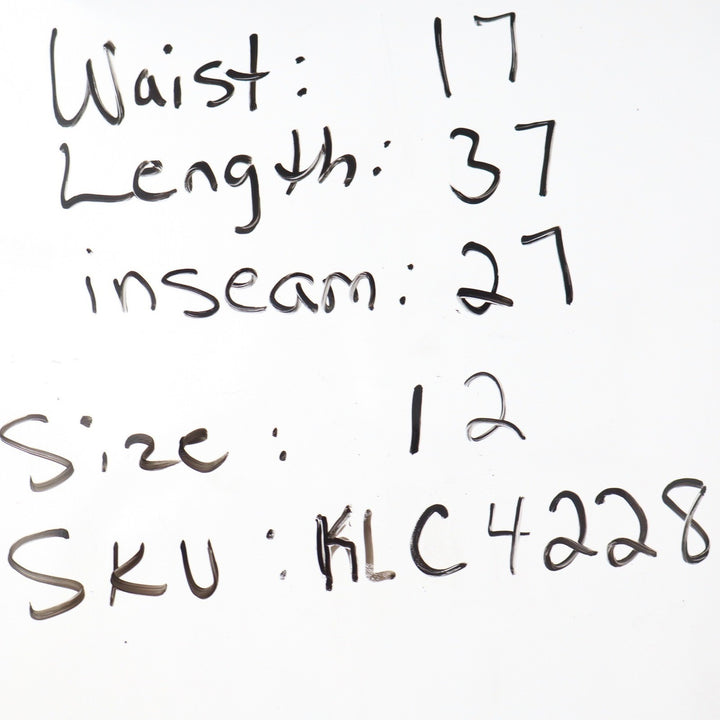 Waist: 17
Length: 37
inseam: 27
Size: 12
SKU: KLC4228